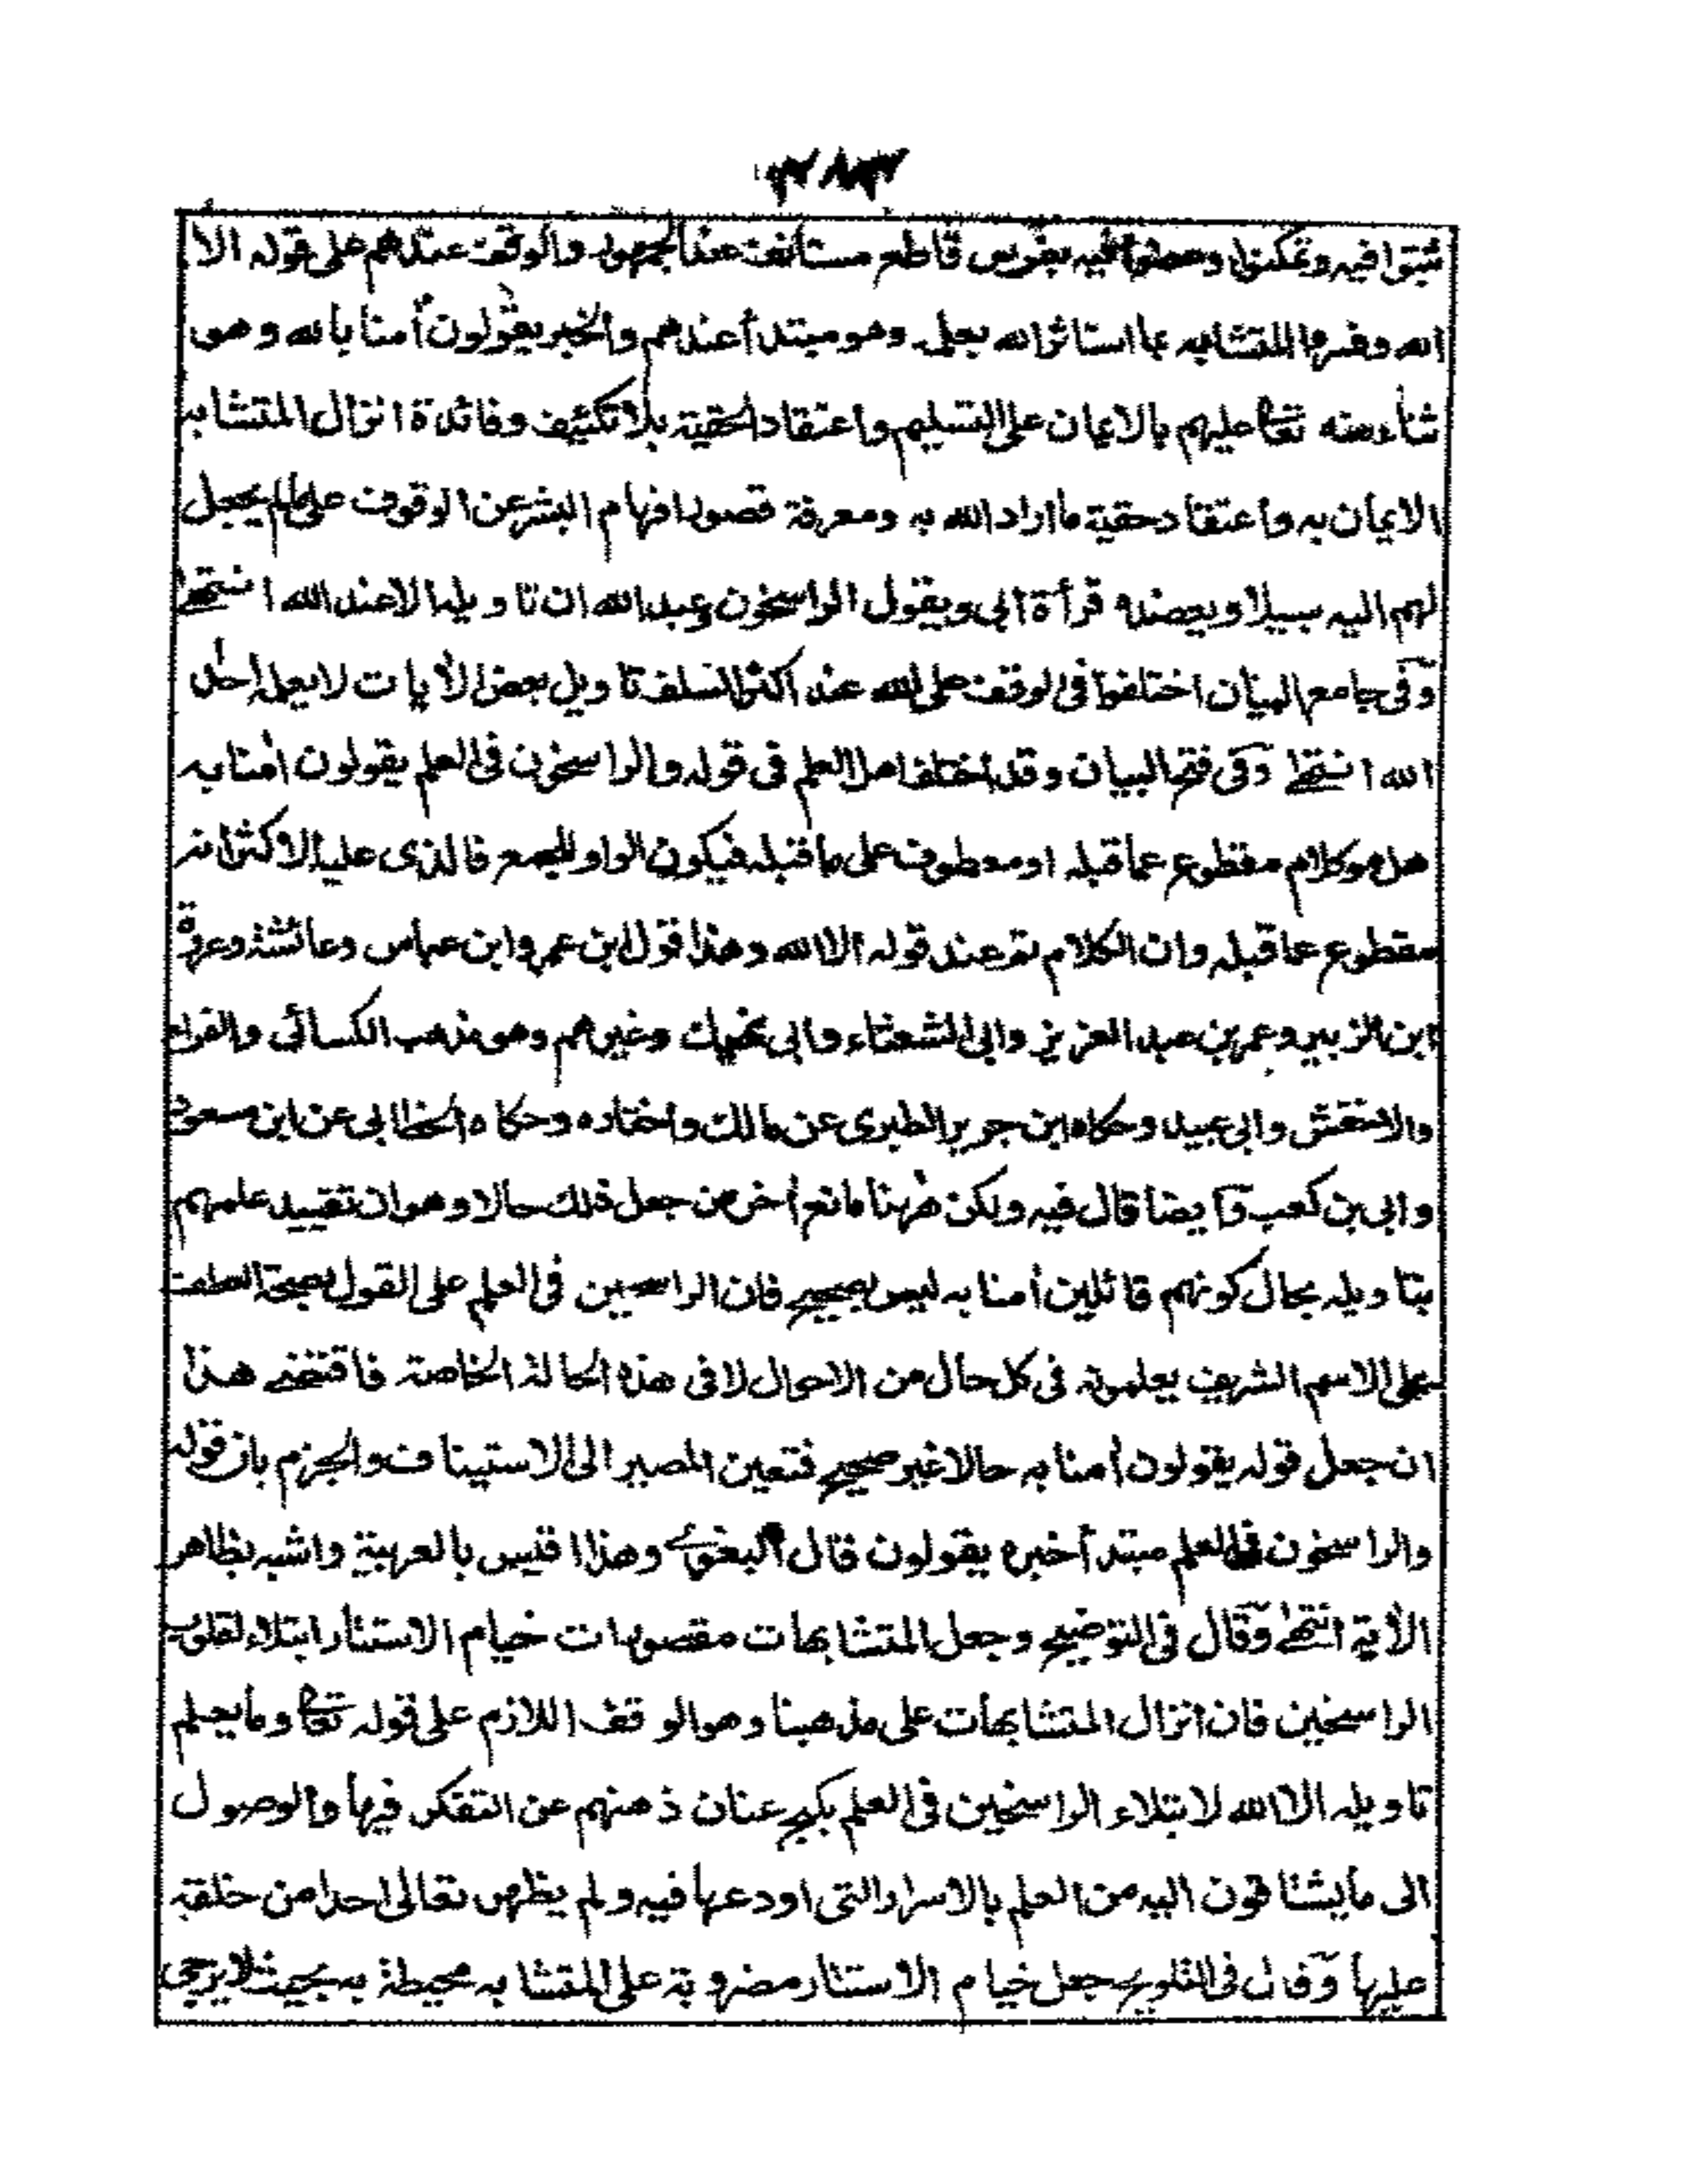 ٢٨٣
ثبتوا فيه وتمكنوا وعضوا فيه بضرس قاطع مستأنف عند الجمهور والوقف عندهم على قوله الا
الله وفسروا المتشابه بما استاثر الله بعلمه وهو مبتدأ عندهم والخبر يقولون أمنا بالله وهو
ثناء منه تعالى عليهم بالايمان على التسليم واعتقاد الحقية بلا تكييف وفائدة انزال المتشابه
الايمان به واعتقاد حقية ما اراد الله به ومعرفة قصور افهام البشر عن الوقوف على ما لم يجعل
لهم اليه سبيلا ويعضده قرأة ابى ويقول الراسخون وعبد الله ان تاويله الا عند الله انتهى
وفى جامع البيان اختلفوا فى الوقف على الله عند اكثر السلف تاويل بعض الأيات لا يعلم احد
الله انتهى وفى فتح البيان وقد اختلف اهل العلم فى قوله والراسخون فى العلم يقولون أمنا به
هل هو كلام مقطوع عما قبله او معطوف على ما قبله فيكون الواو للجمع فالذى عليه الاكثر انه
مقطوع عما قبله وان الكلام تم عند قوله الا الله وهذا قول ابن عمر وابن عباس وعائشة وعروة
ابن الزبير وعمر بن عبد العزيز وابى الشعثاء وابى نهيك وغيرهم وهو مذهب الكسائى والفراء
والاخفش وابى عبيد وحكاه ابن جرير الطبرى عن مالك واختاره وحكاه الخطابى عن ابن مسعود
وابى بن كعب وأيضا قال فيه ولكن ههنا مانع أخر من جعل ذلك حالا وهو ان تقييد علمهم
بتاويله بحال كونهم قائلين أمنا به ليس بصحيح فان الراسخين فى العلم على القول بصحة العطف
على الاسم الشريف يعلمونه فى كل حال من الاحوال لا فى هذه الحالة الخاصة فاقتضى هذا
ان جعل قوله يقولون أمنا به حالا غير صحيح فتعين المصير الى الاستيناف والجزم بان قوله
والراسخون فى العلم مبتدأ خبره يقولون قال البغوى وهذا اقيس بالعربية واشبه بظاهر
الأية انتهى وقال فى التوضيح وجعل المتشابهات مقصورات خيام الاستتار ابتلاء لقلوب
الراسخين فان انزال المتشابهات على مذهبنا وهو الوقف اللازم على قوله تعالى وما يعلم
تاويله الا الله لابتلاء الراسخين فى العلم بكبح عنان ذهنهم عن التفكر فيها والوصول
الى ما يشتاقون اليه من العلم بالاسرار التى اودعها فيه ولم يظهر تعالى احدا من خلقه
عليها وقال فى التلويح جعل خيام الاستتار مضروبة على المتشابه محيطة به بحيث لا يرجى